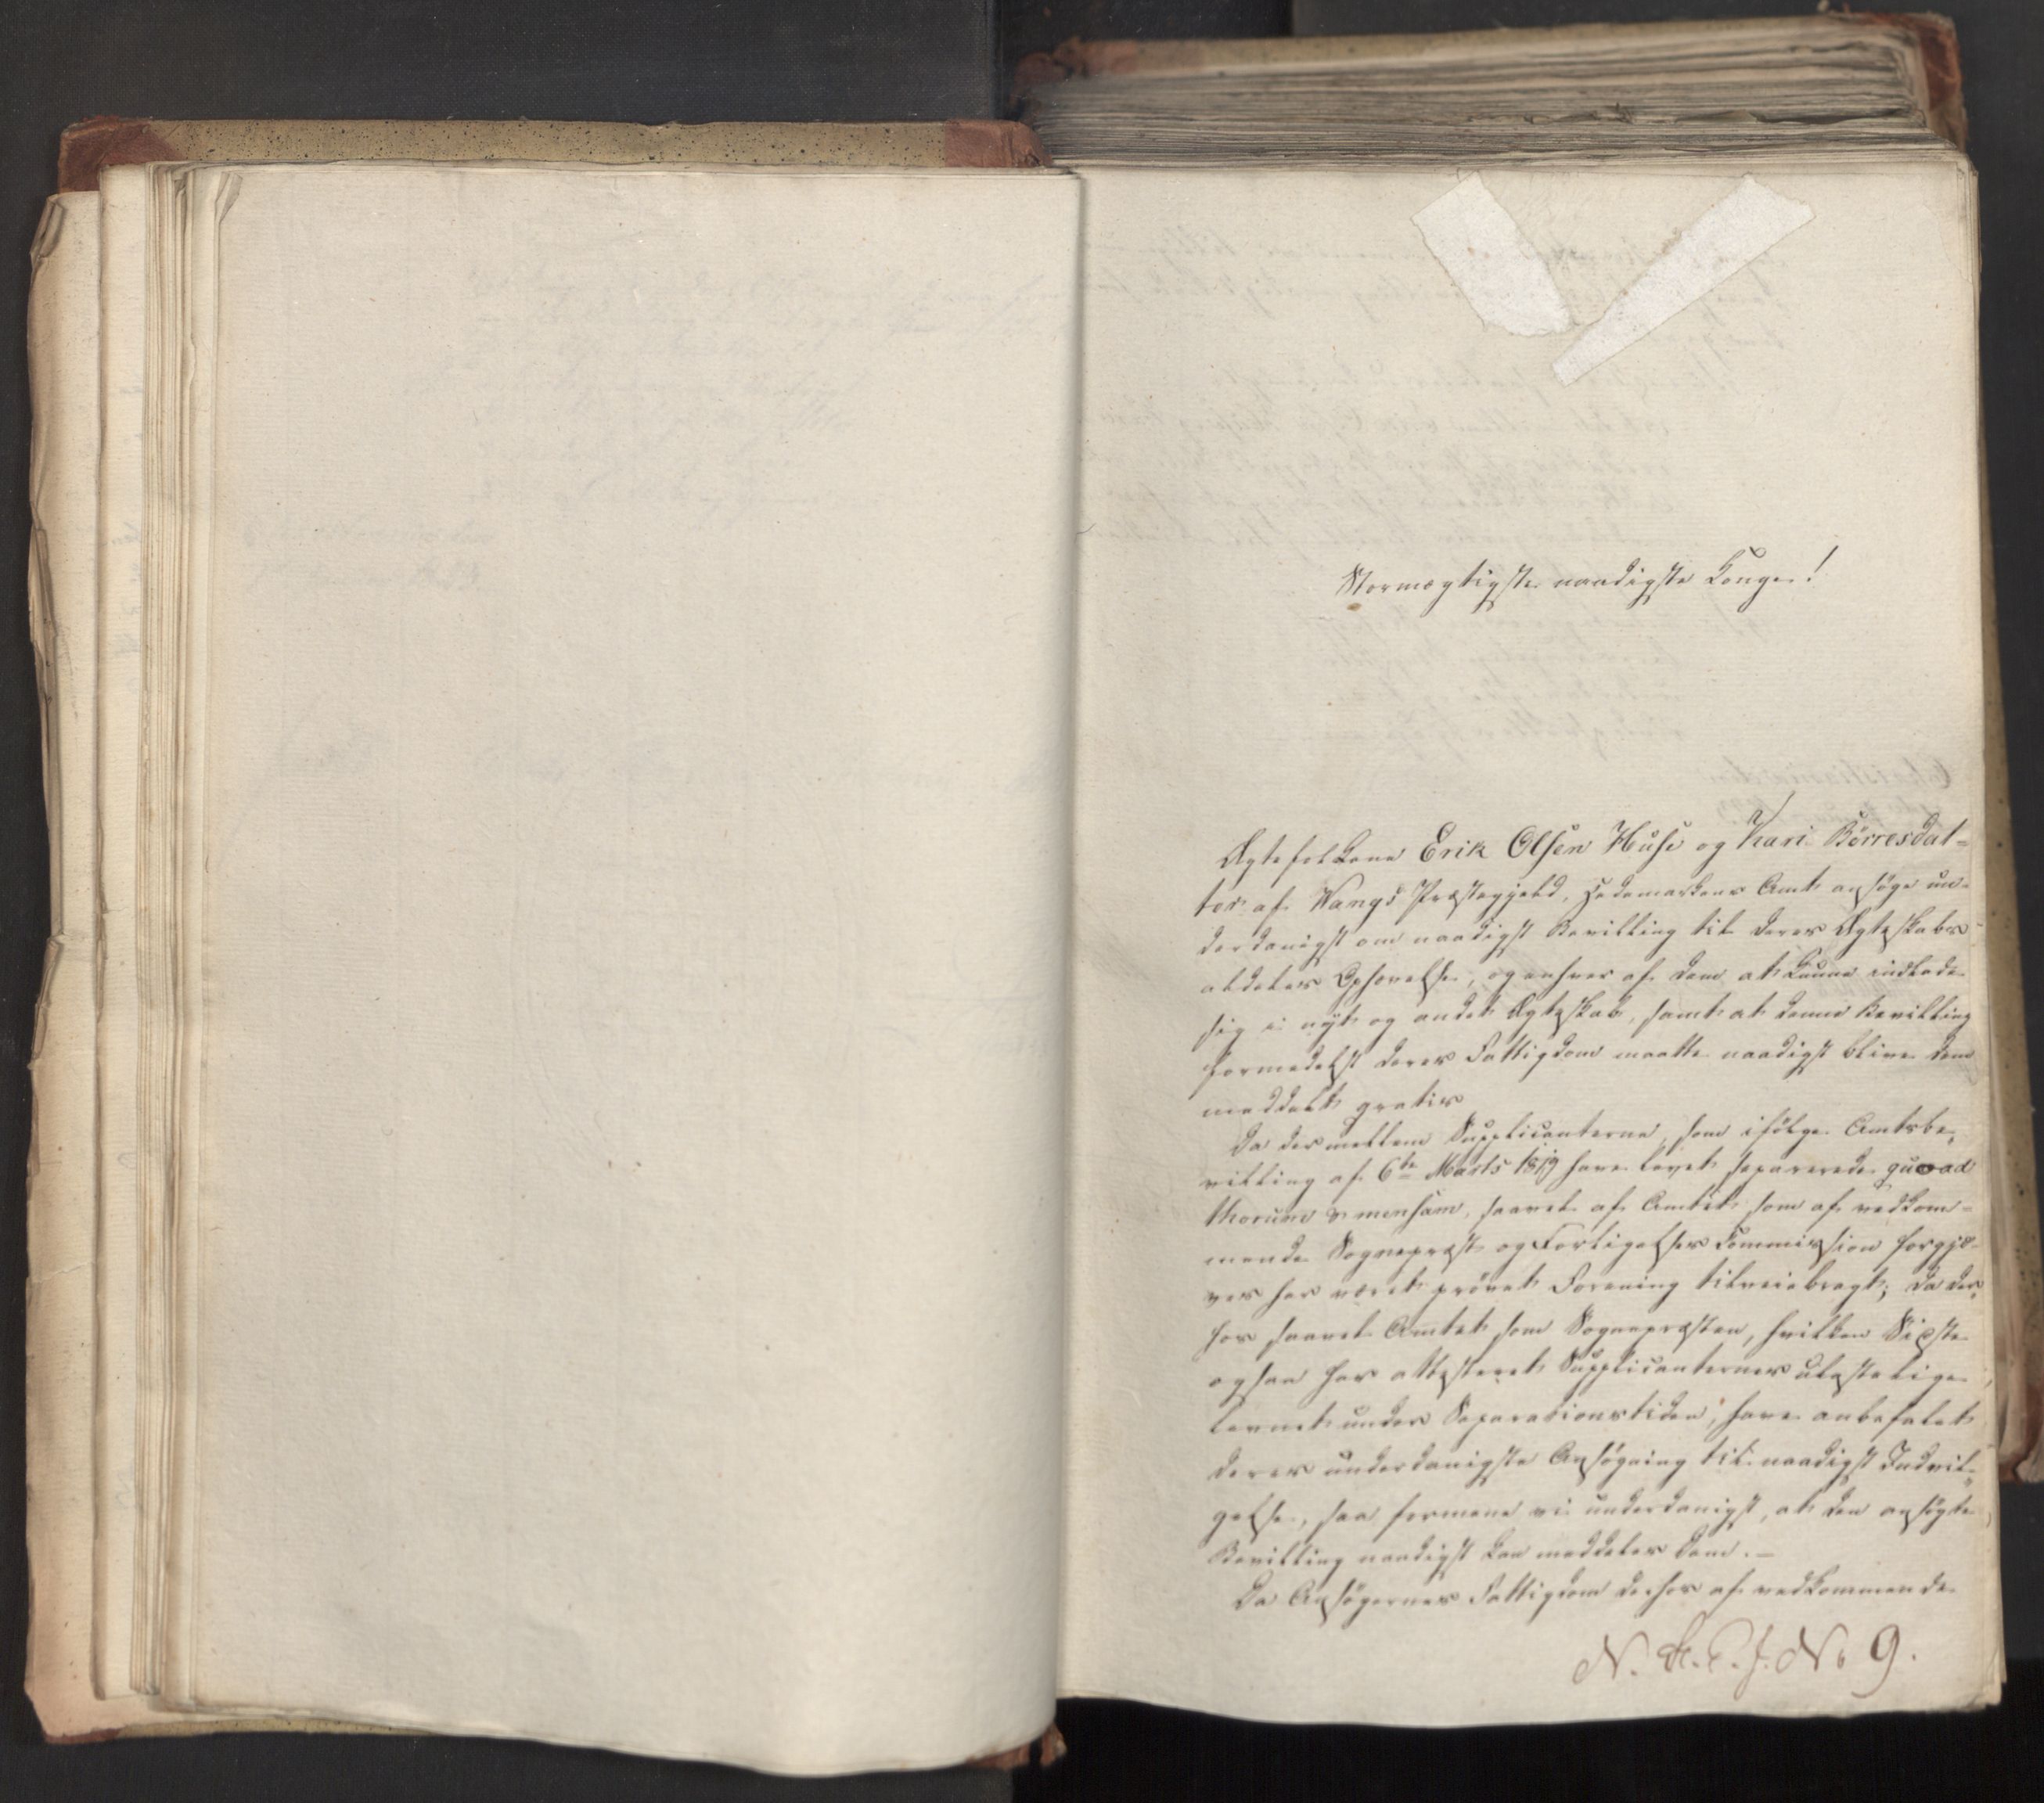 Stormægtigste naadigste Konge!
Ægtefolkene Erik Olsen Huse og Kari Börresdat=
ter af Vangs Præstegjeld, Hedemarkens Amt ansøge un=
derdanigst om naadigst Bevilling til deres Ægteskabs
aldeles Ophævelse, og enhver af dem at kunne indlade
sig i nyt og andet Ægteskab, samt at denne Bevilling
formedelst deres Fattigdom maatte naadigst blive dem
meddelt gratis
Da der mellem Supplicanterne, som ifölge Amtsbe,
villing af 6te Marts 1819 have levet separerede quoad
thorum & mensam, saavel af Amtet som af vedkom=
mende Sognepræst og Forligelses Commission forgjæ=
ves har været prövet Forening tilveiebragt; da der,
hos saavel Amtet som Sognepræsten, hvilken Sidste
ogsaa har attesteret Supplicanternes ulastelige
Levnet under Separationstiden, have anbefalet
deres underdanigste Ansøgning til naadigst Indvil=
gelse, saa formene vi underdanigst, at den ansøgte
Bevilling naadigst kan meddeles dem.—
Da Ansøgernes Fattigdom derhos af vedkommende
N. St. R. J. No 9.